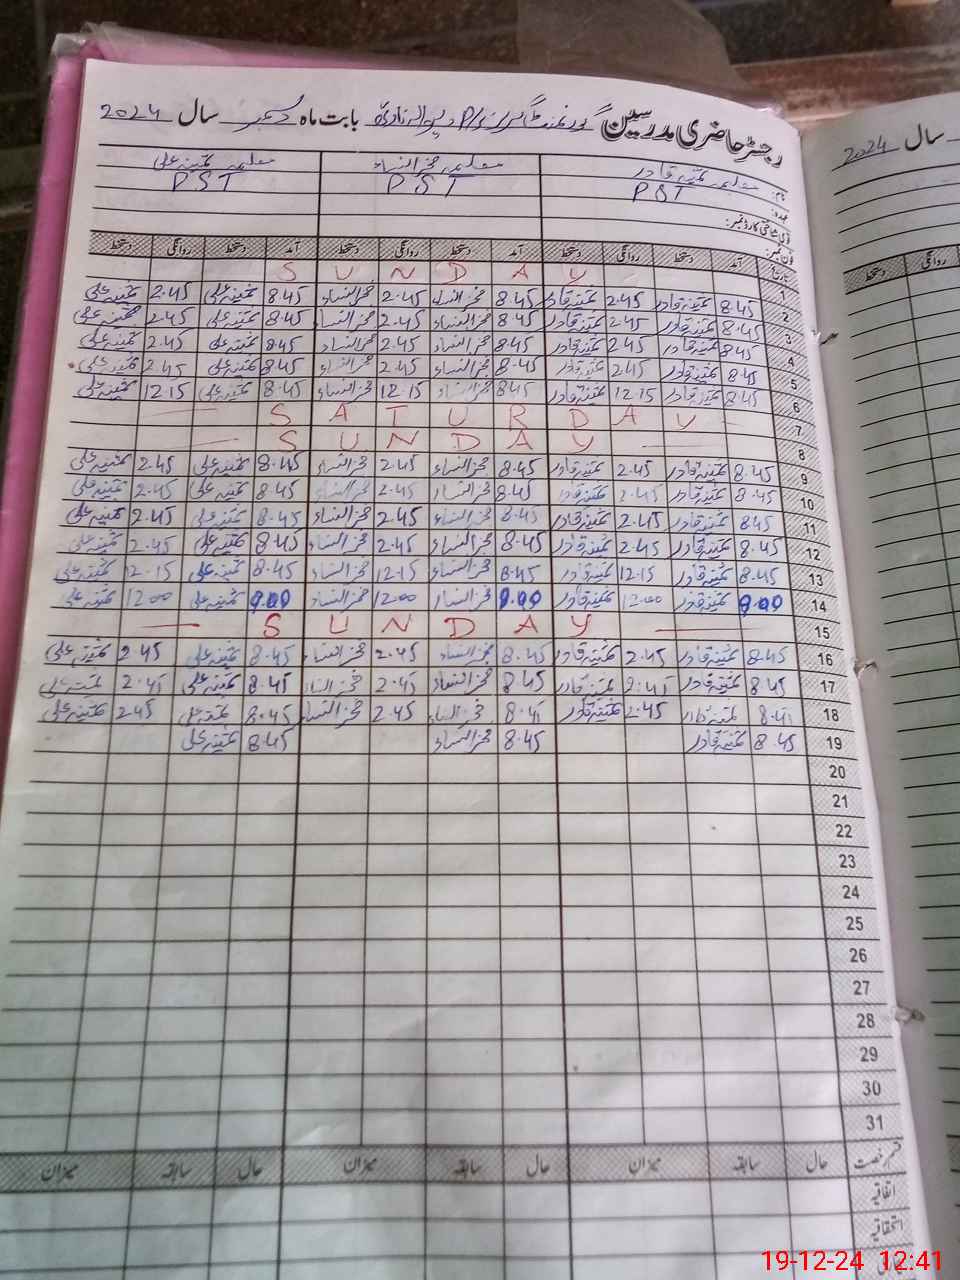 رجسٹر حاضری مدرسین گورنمنٹ گرلز P/S بابت ماہ دسمبر سال 2024
سال 2024
نام: معلمہ ثمینہ قادر معلمہ فخر النساء معلمہ ثمینہ علی
عہدہ: PST PST PST
قومی شناختی کارڈ نمبر:
فون نمبر:
تاریخ آمد دستخط روانگی دستخط آمد دستخط روانگی دستخط آمد دستخط روانگی دستخط
روانگی دستخط
1 SUNDAY
2 8.45 ثمینہ قادر 2.45 ثمینہ قادر 8.45 فخر النساء 2.45 فخر النساء 8.45 ثمینہ علی 2.45 ثمینہ علی
3 8.45 ثمینہ قادر 2.45 ثمینہ قادر 8.45 فخر النساء 2.45 فخر النساء 8.45 ثمینہ علی 2.45 ثمینہ علی
4 8.45 ثمینہ قادر 2.45 ثمینہ قادر 8.45 فخر النساء 2.45 فخر النساء 8.45 ثمینہ علی 2.45 ثمینہ علی
5 8.45 ثمینہ قادر 2.45 ثمینہ قادر 8.45 فخر النساء 2.45 فخر النساء 8.45 ثمینہ علی 2.45 ثمینہ علی
6 8.45 ثمینہ قادر 12.15 ثمینہ قادر 8.45 فخر النساء 12.15 فخر النساء 8.45 ثمینہ علی 12.15 ثمینہ علی
7 SATURDAY
8 SUNDAY
9 8.45 ثمینہ قادر 2.45 ثمینہ قادر 8.45 فخر النساء 2.45 فخر النساء 8.45 ثمینہ علی 2.45 ثمینہ علی
10 8.45 ثمینہ قادر 2.45 ثمینہ قادر 8.45 فخر النساء 2.45 فخر النساء 8.45 ثمینہ علی 2.45 ثمینہ علی
11 8.45 ثمینہ قادر 2.45 ثمینہ قادر 8.45 فخر النساء 2.45 فخر النساء 8.45 ثمینہ علی 2.45 ثمینہ علی
12 8.45 ثمینہ قادر 2.45 ثمینہ قادر 8.45 فخر النساء 2.45 فخر النساء 8.45 ثمینہ علی 2.45 ثمینہ علی
13 8.45 ثمینہ قادر 12.15 ثمینہ قادر 8.45 فخر النساء 12.15 فخر النساء 8.45 ثمینہ علی 12.15 ثمینہ علی
14 9.00 ثمینہ قادر 12.00 ثمینہ قادر 9.00 فخر النساء 12.00 فخر النساء 9.00 ثمینہ علی 12.00 ثمینہ علی
15 SUNDAY
16 8.45 ثمینہ قادر 2.45 ثمینہ قادر 8.45 فخر النساء 2.45 فخر النساء 8.45 ثمینہ علی 2.45 ثمینہ علی
17 8.45 ثمینہ قادر 2.45 ثمینہ قادر 8.45 فخر النساء 2.45 فخر النساء 8.45 ثمینہ علی 2.45 ثمینہ علی
18 8.45 ثمینہ قادر 2.45 ثمینہ قادر 8.45 فخر النساء 2.45 فخر النساء 8.45 ثمینہ علی 2.45 ثمینہ علی
19 8.45 ثمینہ قادر 8.45 فخر النساء 8.45 ثمینہ علی
20
21
22
23
24
25
26
27
28
29
30
31
قسم رخصت حال سابقہ میزان حال سابقہ میزان حال سابقہ میزان
اتفاقیہ
استحقاقیہ
19-12-24 12:41